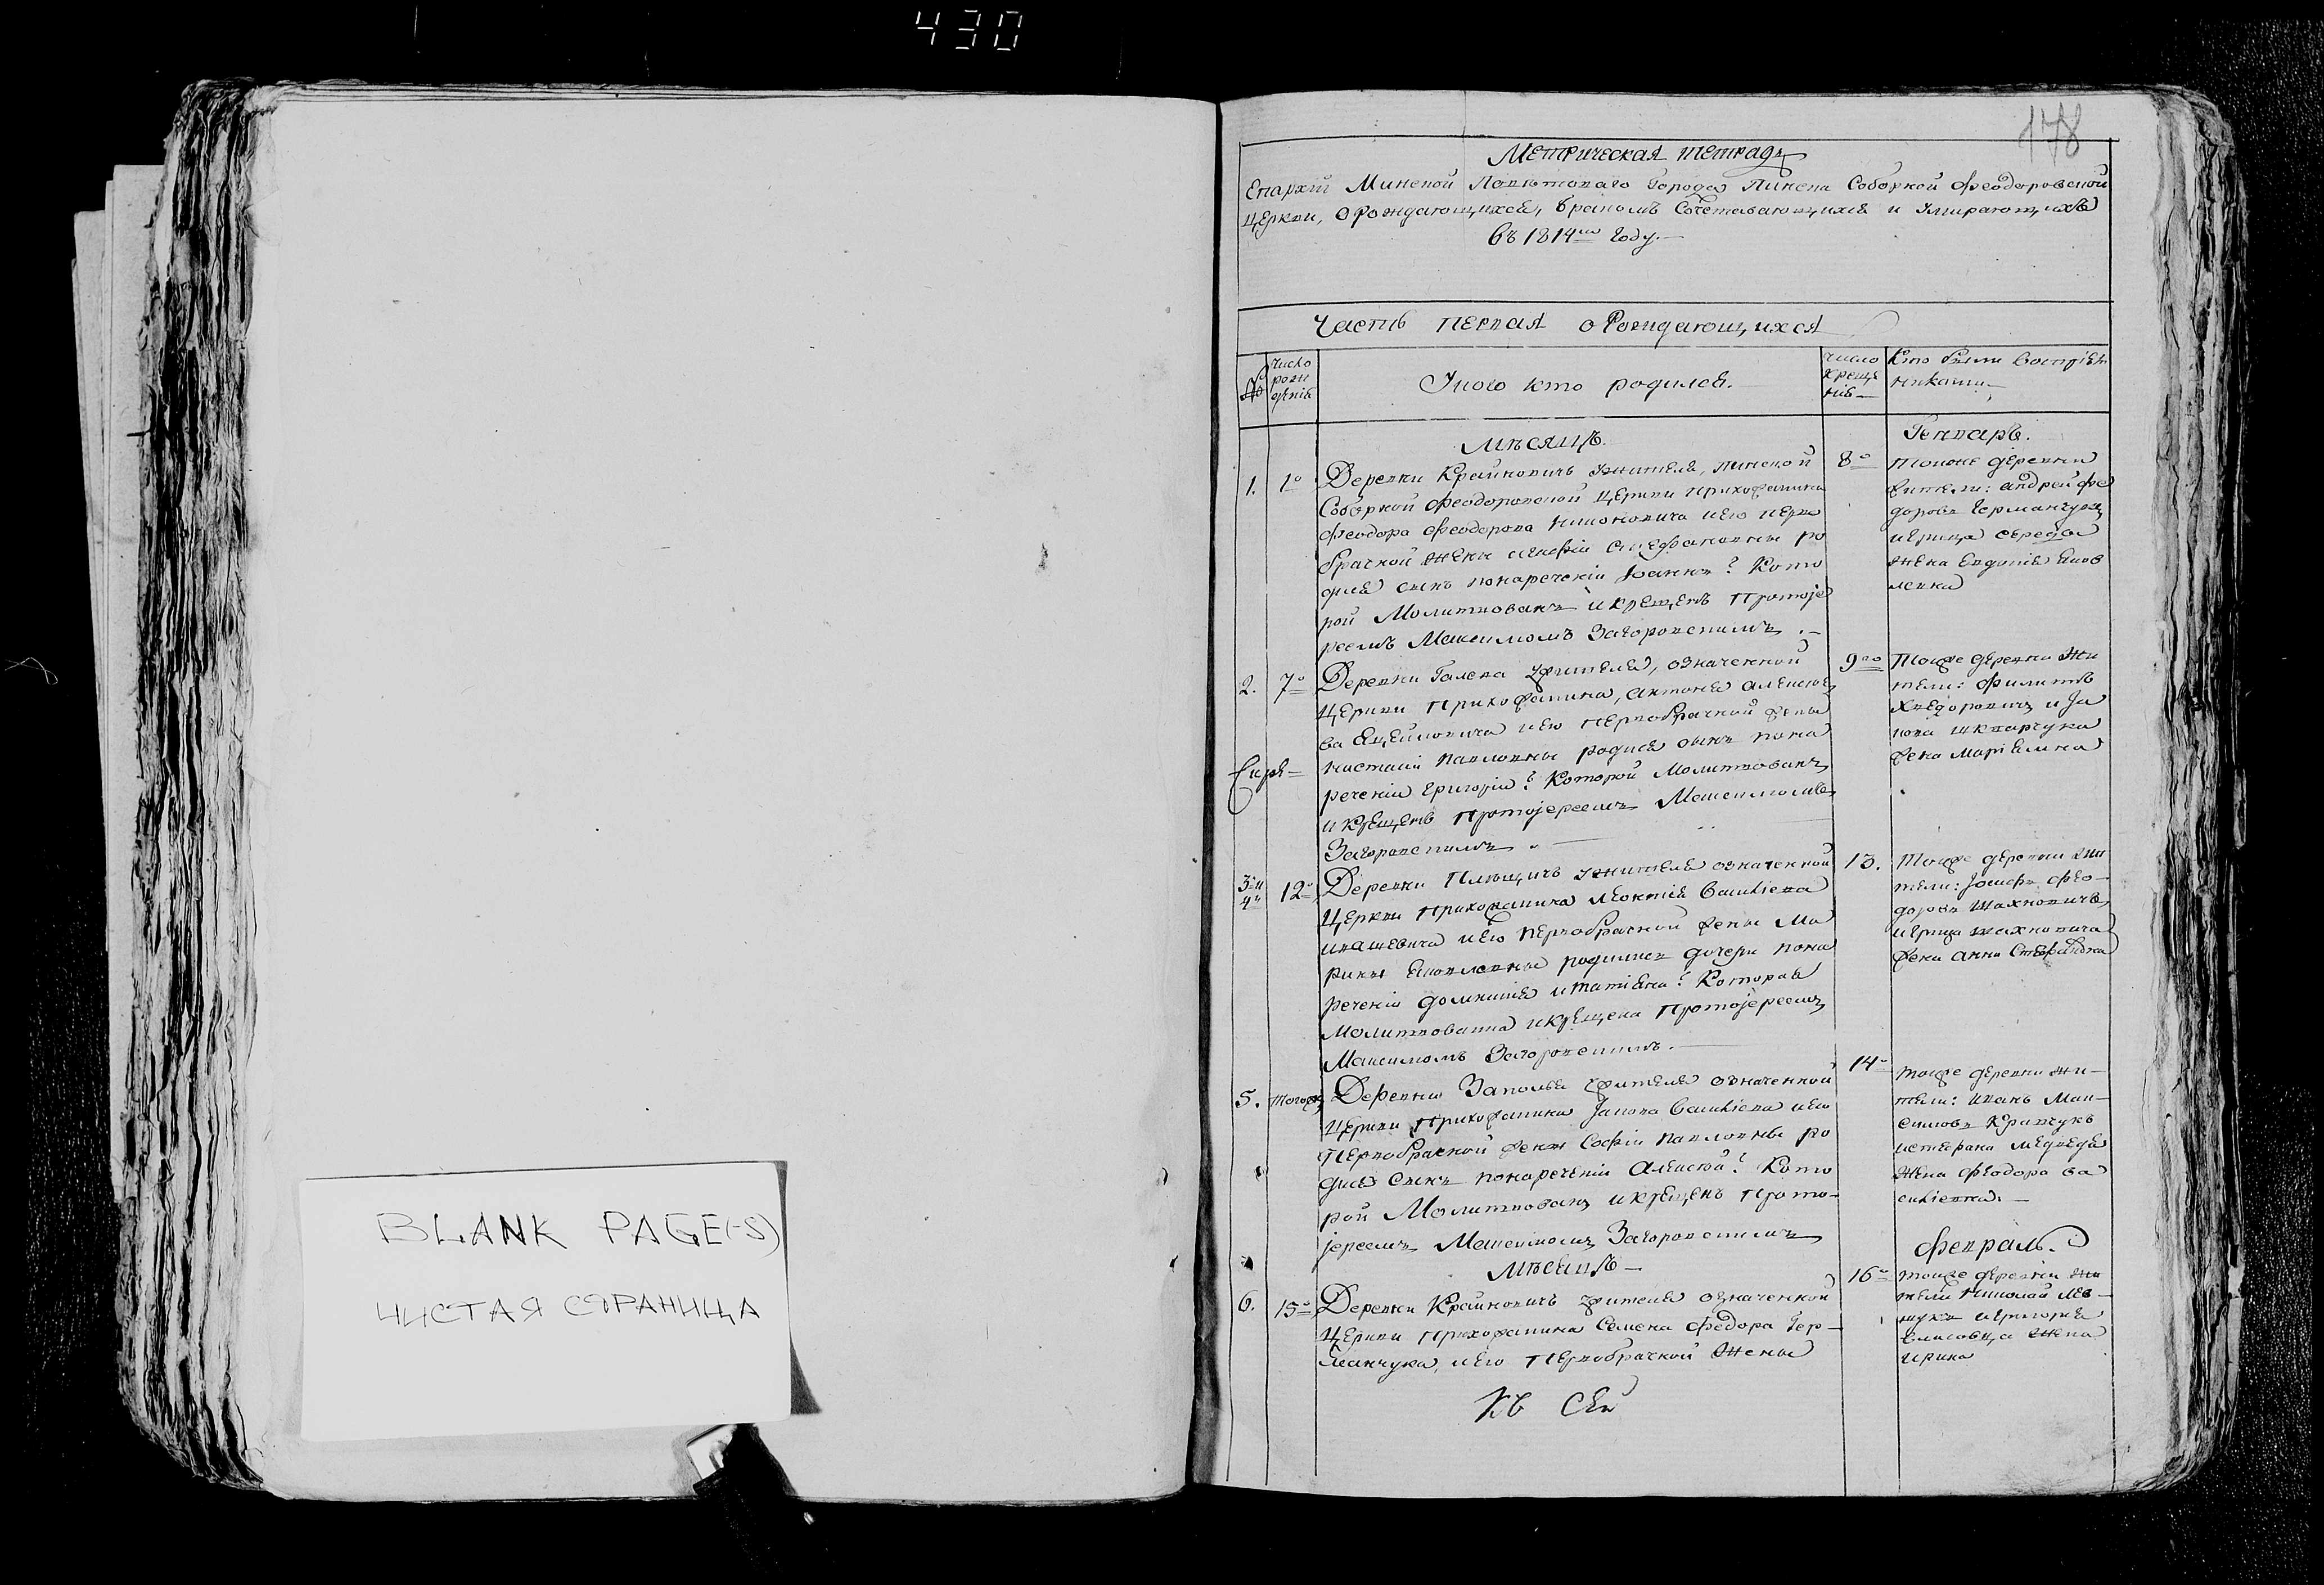 430
BLANK PAGE(-S)
ЧИСТАЯ СТРАНИЦА
178
Метрическая тетрадь
Епархіи Минской Повѣтоваго Города Пинска Соборной Феодоровской
церкви, о Рождающихся, бракомъ Сочетавающихся и Умирающихъ
въ 1814мъ Году.—
Часть первая о Рождающихся
№
Число рож денія
У кого кто родился.
число креще нія—
Кто были воспріем никами—
мѣсяцъ
Генварь.
1.
1о
Деревни Крайновичъ жителя, пинской
Соборной Феодоровской церкви прихожанина
Феодора Феодорова и его перво
брачной жены Стефановны ро
дился сынъ понареченіи Іоаннъ: Кото
рой Молитвованъ и крещенъ Протоје
реемъ Максимомъ Загоровскимъ.—
8о
тойже деревни
жители: андрей фе
доровъ Германчукъ
и Середы
жена Евдокія Яков
левна
2.
7о
Деревни Галева жителя, означенной
церкви прихожанина, антонія алексіе
ва и его первобрачной жены
настасіи павловны родися сынъ пона
реченіи григорій: Которой Молитвованъ
и крещенъ протојереемъ Максимомъ
Загоровскимъ.—
9го
Тойже деревни жи
тели: филиппъ
Хведоровичъ и Ја
кова
жена Маріамна
3й и 4й
12о
Деревни Плещичъ жителя означенной
Церкви прихожанина леонтія Василіева
ивашевича и его первобрачной жены Ма
рины Яковлевны родились дочери пона
реченіи домникія и татіана: Которая
Молитвованна и крещена протојереемъ
Максимомъ Загоровскимъ.—
13.
Тойже деревни жи
тели: Јосифъ фео-
доровъ Шахновичъ,
шахновича
жена анна Стефановна
5.
тогожъ
Деревни Заполья жителя означенной
церкви прихожанина Јакова Василіева и его
Первобрачной жены Софіи павловны ро
дися Сынъ понареченіи алексій: Кото
рой Молитвованъ и крещенъ прото-
јереемъ Максимомъ Загоровскимъ
14о
тойже деревни жи-
тели: иванъ Мак-
симовъ Кравчукъ
и стефана медведя
жена феодора ва
силіевна.—
мѣсяцъ—
февраль.
6.
15о
Деревни Крайновичъ жителя означенной
церкви прихожанина Семена федора Гер-
манчука, и его первобрачной жены
16о
тойже деревни жи
тели николай Лев-
чукъ и григорія
жена
ирина